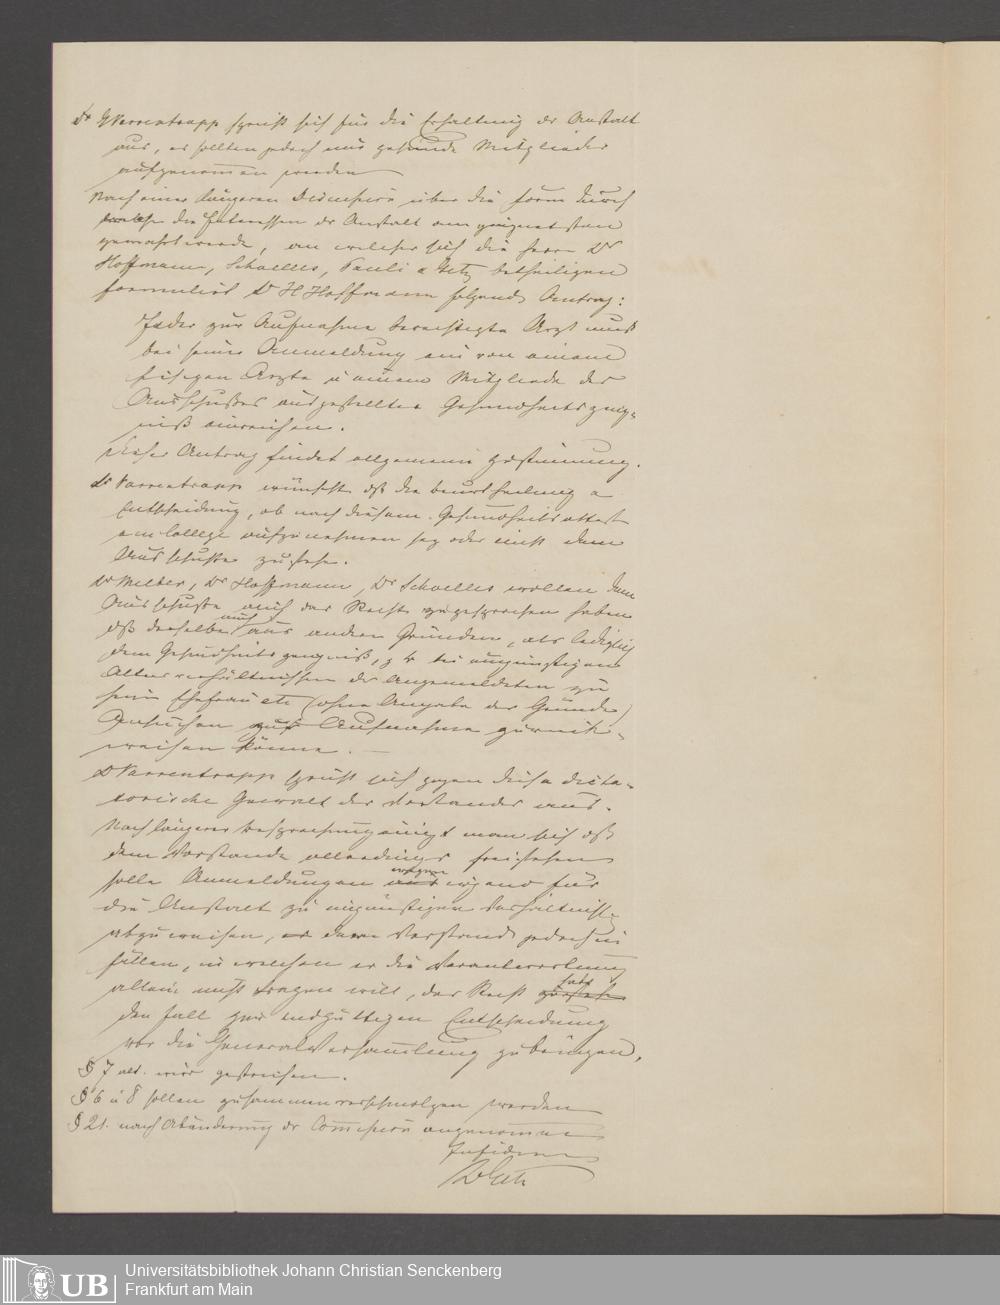 Dr G Varrentrapp spricht sich für die Erhaltung der Anstalt
aus, es sollten jedoch nur gesunde Mitglieder
aufgenommen werden
Nach einer längeren Discussion über die Form durch
welche die Interessen der Anstalt am geeignetsten
gewahrt werde, an welcher sich die Herrn Dr
Hoffmann, Schoelles, Pauli u Getz betheiligen
formulirt Dr H Hoffmann folgend. Antrag:
Jeder zur Aufnahme berechtigte Arzt muß
bei seiner Anmeldung ein von einem
hiesigen Arzte u einem Mitgliede des
Ausschußes ausgestelltes Gesundheitszeug=
niß einreichen.
Dieser Antrag findet allgemeine Zustimmung.
Dr Varrentrapp wünscht dß die Beurtheilung u
Entscheidung, ob nach diesem Gesundheitsattest
ein College aufzunehmen sey oder nicht dem
Ausschuße zustehe.
Dr Melber, Dr Hoffmann, Dr Schoelles wollen dem
Ausschuße auch das Recht zugesprochen haben
dß derselbe auch aus andern Gründen, als lediglich
dem Gesundheitszeugniß, z b bei ungünstigen
Altersverhältnissen des Angemeldeten zu
seiner Ehefrau etc (ohne Angabe der Gründe)
Ansuchen zur Aufnahme zurück=
weisen könne. —
Dr Varrentrapp spricht sich gegen diese dicta=
torische Gewalt des Vorstandes aus.
Nach längerer Besprechung einigt man sich dß
dem Vorstande allerdings freistehen
solle Anmeldungen wegen irgend für
die Anstalt zu ungünstigen Verhältniße
abzuweisen, dem Vorstand jedoch in
Fällen, in welchen er die Verantwortung
allein nicht tragen will, das Recht habe
den Fall zur endgültigen Entscheidung
vor die Generalversammlung zu bringen.
§ 7 alt. wird gestrichen.
§ 6 u 8 sollen zusammenverschmolzen werden
§ 21. nach Abänderung der Commission angenommen
In fidem
Dr Getz
UB
Universitätsbibliothek Johann Christian Senckenberg
Frankfurt am Main